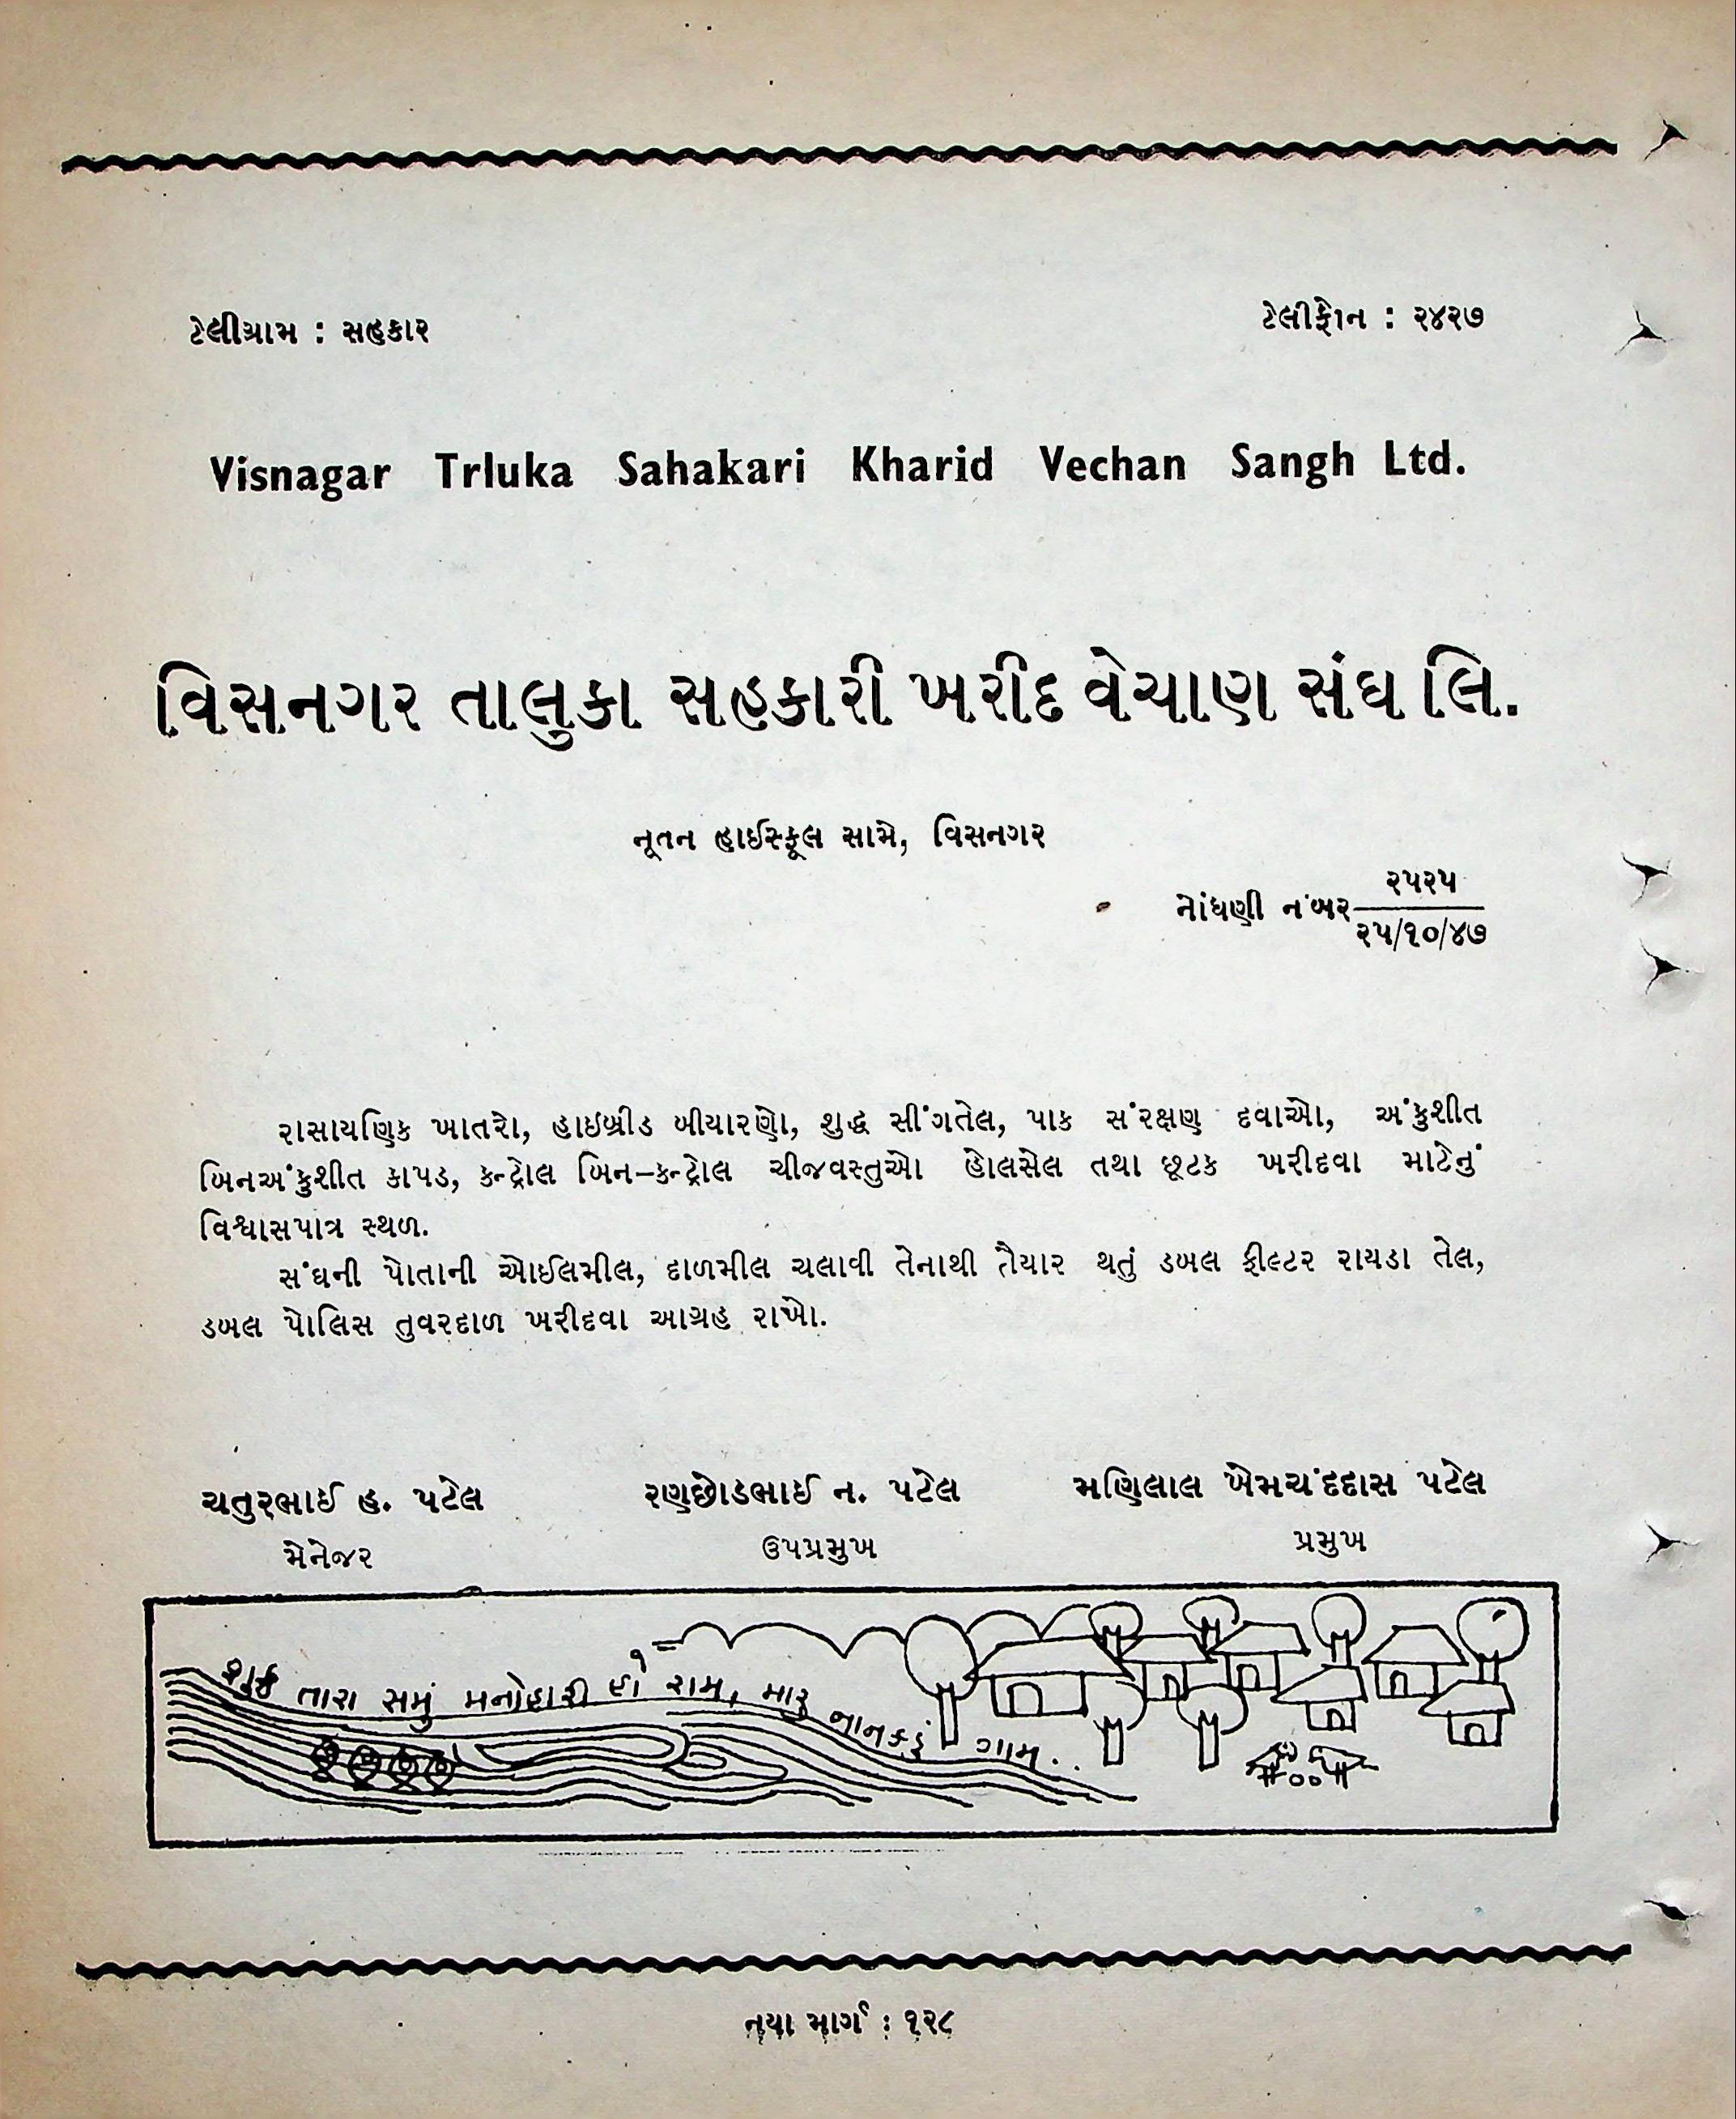 ટેલીગ્રામ : સહકાર
ટેલીફોન : ૨૪૨૭
Visnagar Trluka Sahakari Kharid Vechan Sangh Ltd.
વિસનગર તાલુકા સહકારી ખરીદ વેચાણ સંઘ લિ.
નૂતન હાઈસ્કૂલ સામે, વિસનગર
નોંધણી નંબર ૨૫૨૫
૨૫/૧૦/૪૭
રાસાયણિક ખાતરો, હાઇબ્રીડ બીયારણો, શુદ્ધ સીંગતેલ, પાક સંરક્ષણ દવાઓ, અંકુશીત
બિનઅંકુશીત કાપડ, કન્ટ્રોલ બિન–કન્ટ્રોલ ચીજવસ્તુઓ હોલસેલ તથા છૂટક ખરીદવા માટેનું
વિશ્વાસપાત્ર સ્થળ.
સંઘની પોતાની ઓઈલમીલ, દાળમીલ ચલાવી તેનાથી તૈયાર થતું ડબલ ફીલ્ટર રાયડા તેલ,
ડબલ પોલિસ તુવરદાળ ખરીદવા આગ્રહ રાખો.
ચતુરભાઈ હ. પટેલ
મેનેજર
રણછોડભાઈ ન. પટેલ
ઉપપ્રમુખ
મણિલાલ ખેમચંદદાસ પટેલ
પ્રમુખ
તારા સમું મનોહારી રામ, મારૂ નાનકડું ગામ..
નયા માર્ગ : ૧૨૮